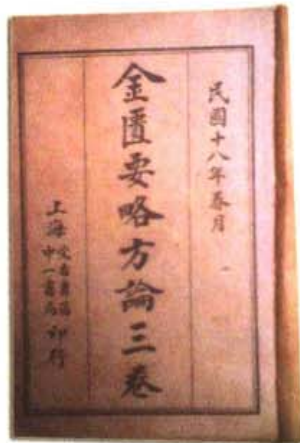 民國十八年春月
金匱要略方論三卷
上海
中一書局
印行